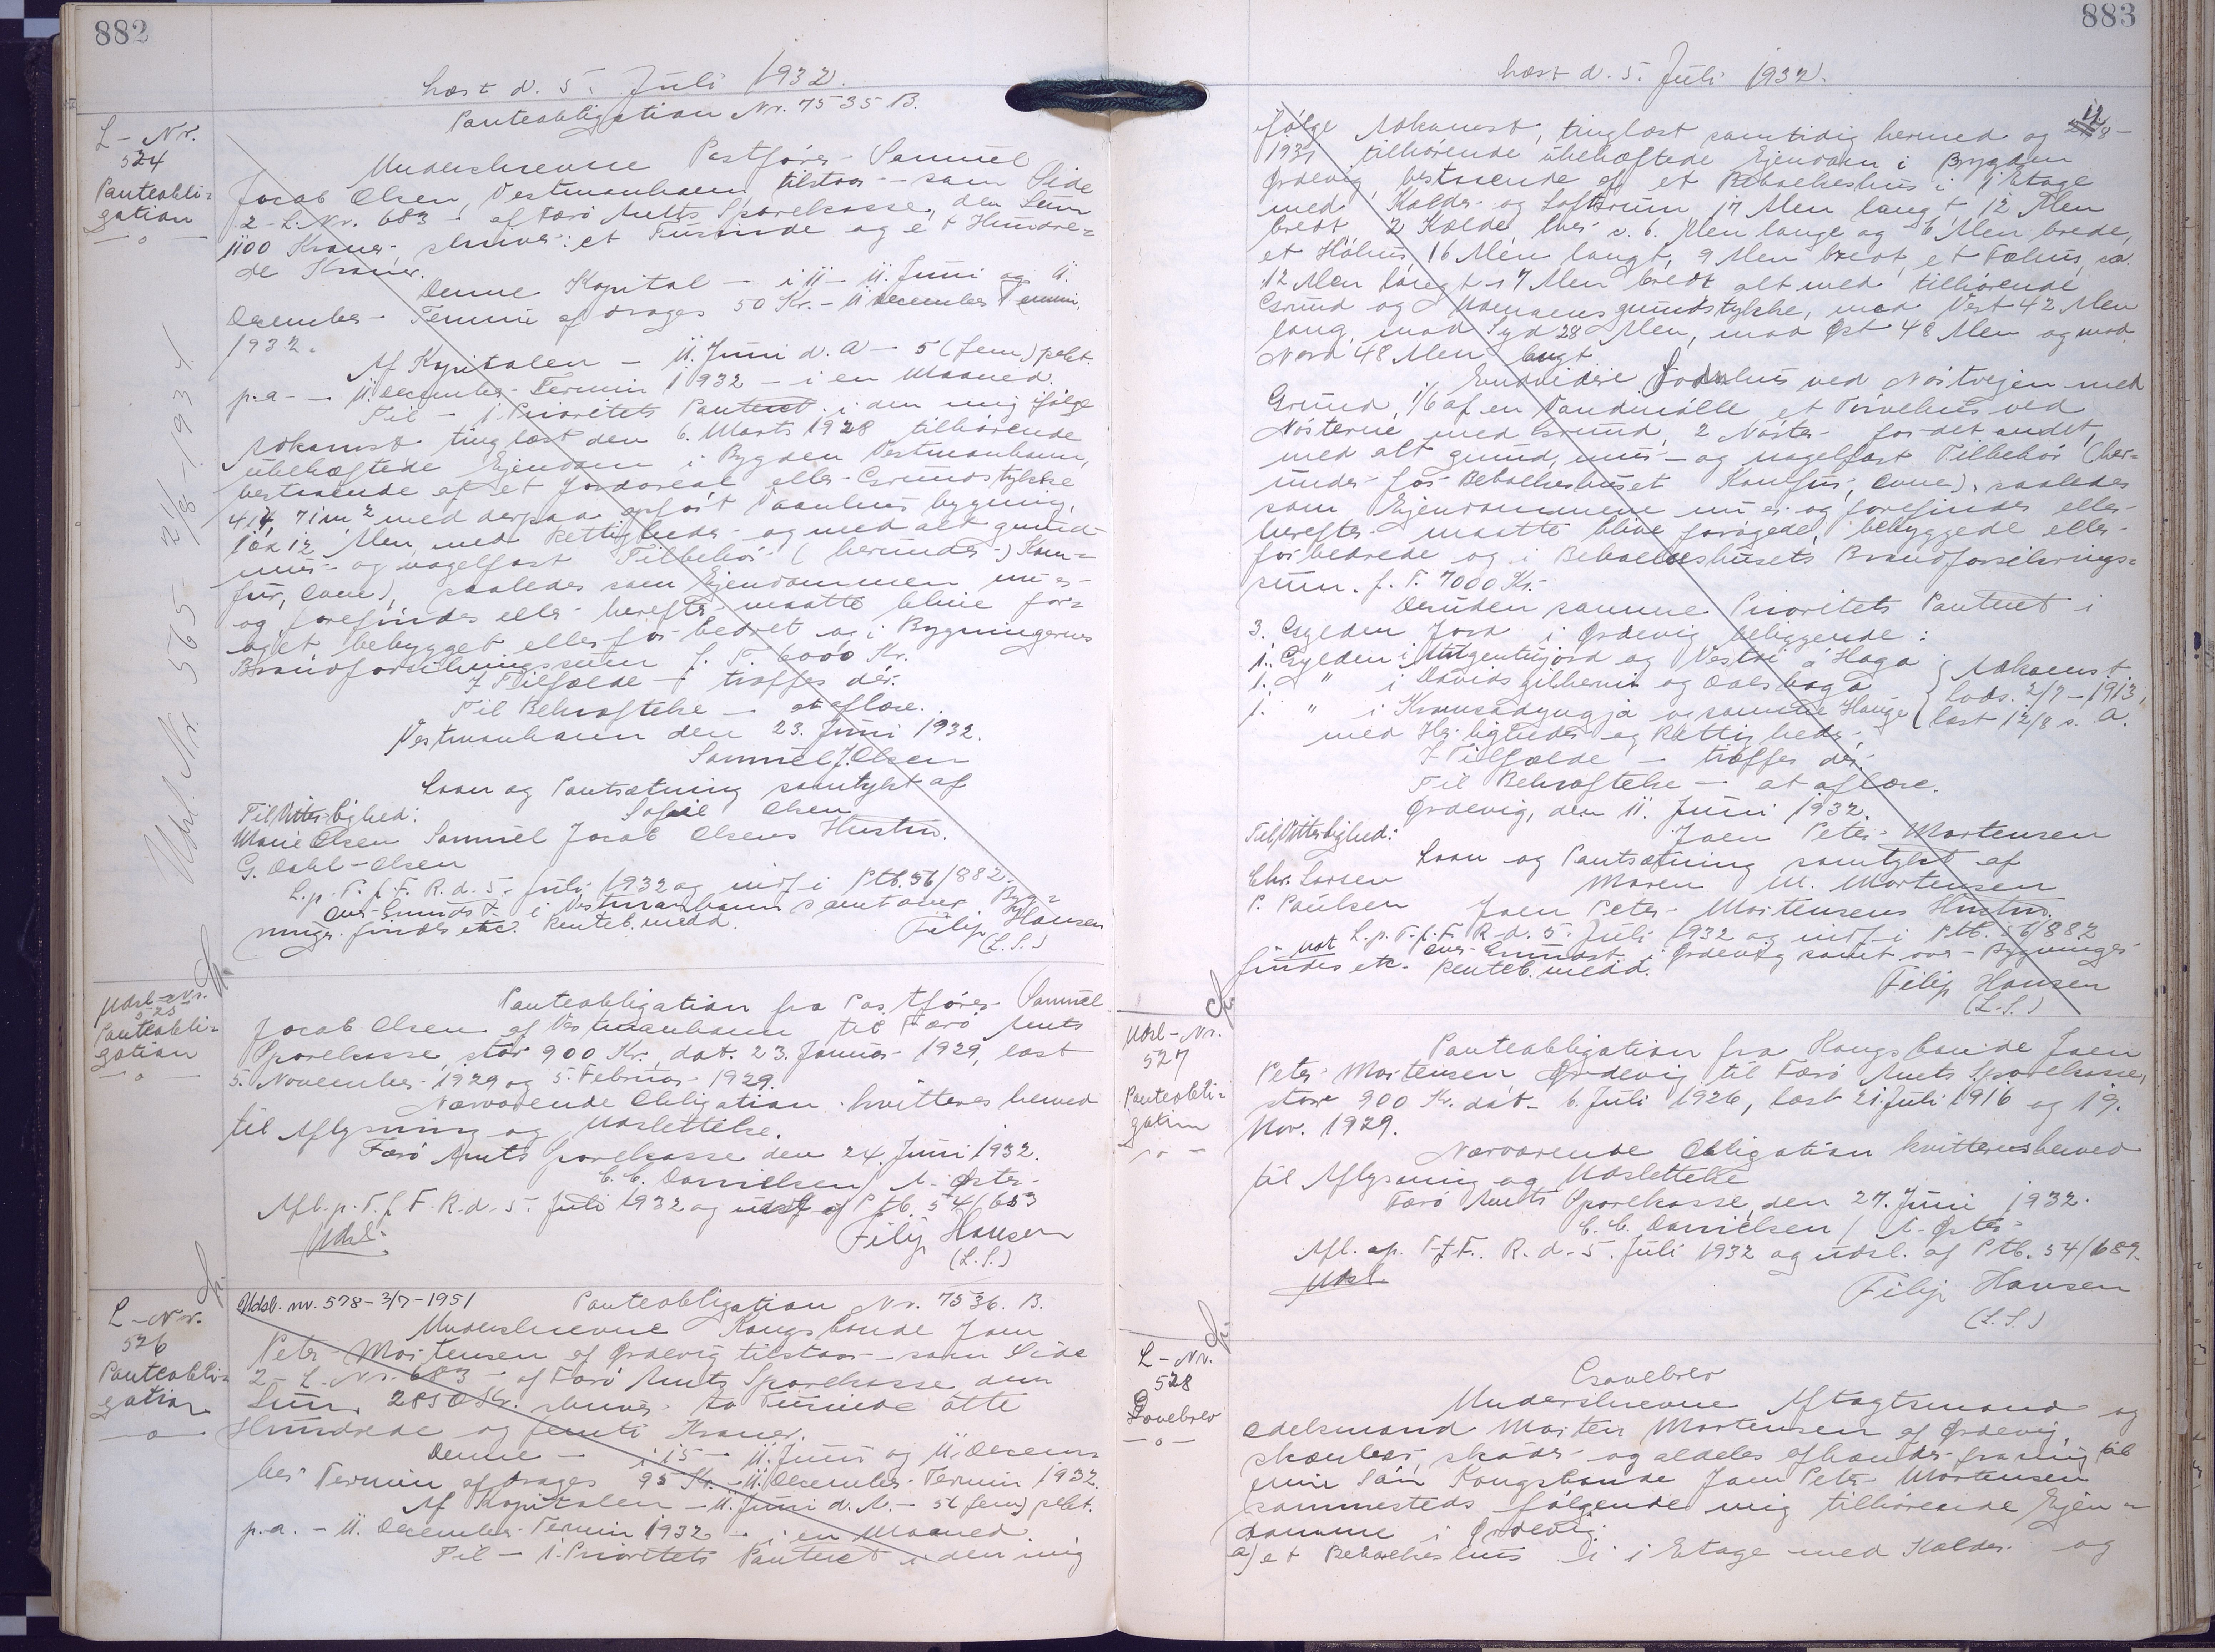 882
Læst d. 5. Juli 1932.
Panteobligation Nr. 7535 B.
L-Nr.
524
Panteobli=
gation
Underskrevne Postfører Samuel
Jacob Olsen, Vestmanhavn, tilstaar - som Side
2 - L. Nr. 683 - af Færø Amts Sparekasse, den Sum
1100 Kroner, skriver: et Tusinde og et Hundre=
de Kroner.
Denne Kapital - i 11 - 11. Juni og 11.
December Termin afdrages 50 Kr. - 11 December Termin
1932.
Af Kapitalen - 11. Juni d. A - 5 (fem) pCt.
p.a. - 11. December Termin 1932 - i en Maaned.
Til - 1. Prioritets Panteret i den mig ifølge
Adkomst tinglæst den 6. Marts 1928 tilhørende
ubehæftede Ejendom i Bygden Vestmanhavn,
bestaaende af et Jordareal eller Grundstykke
414, 71 m² med derpaa opført Vaanhus bygning,
10x12 Alen, med Rettigheder og med alt grund-
mur- og nagelfast Tilbehør (herunder) Kom=
fur, Ovne), saaledes som Ejendommen nu er
og forefindes eller herefter maatte blive for=
øget, bebygget eller for bedret og i Bygningernes
Brandforsikringssum f. T. 6000 Kr.
I Tilfælde - træffes der.
Til Bekræftelse - at aflæse.
Vestmanhavn den 23. Juni 1932.
Samuel J. Olsen
Laan og Pantsætning samtykt af
Til Vitterlighed:
Sofie Olsen
Marie Olsen Samuel Jacob Olsens Hustru.
G. Dahl-Olsen
L. p. T. f. F. R. d. 5. Juli 1932 og indf i Ptb. 56/882.
over Grundst. i Vestmanhavn samt over Byg=
ninger findes etc. Panteb. medd.
Filip Hansen
(L.S.)
Udsl. Nr. 565 - 21/8-1934
Udsl-Nr.
525
Panteobli=
gation
Panteobligation fra Postfører Samuel
Jacob Olsen af Vestmanhavn til Færø Amts
Sparekasse, stor 900 Kr., dat. 23. Januar 1929, læst
5. November 1929 og 5. Februar 1929.
Nærværende Obligation kvitteres herved
til Aflysning og Udslettelse.
Færø Amts Sparekasse den 24. Juni 1932.
C. C. Danielsen / A. Øster
Afl. p. T. f. F. R. d. 5. Juli 1932 og udsl af Ptb. 54/683
Udsl.
Filip Hansen
(L.S.)
L-Nr.
526
Panteobli=
gation
Udsl. nr. 578 - 3/7-1951
Panteobligation Nr. 7536. B.
Underskrevne Kongsbonde Joen
Peter Mortensen af Ørdevig tilstaar - som Side
2 - L. Nr. 683 - af Færø Amts Sparekasse den
Sum 2850 Kr. skriver to Tusinde otte
Hundrede og femti Kroner.
Denne - i 15 - 11. Juni og 11. Decem=
ber Termin afdrages 95 Kr. - 11. December Termin 1932.
Af Kapitalen - 11. Juni d. A. - 5 (fem) pCt.
p.a. - 11. December Termin 1932 - i en Maaned.
Til - 1. Prioritets Panteret i den mig
883
Læst d. 5. Juli 1932.
følge Adkomst, tinglæst samtidig hermed og 12/8-
1931 tilhørende ubehæftede Ejendom i Bygden
Ørdevig, bestaaende af et Beboelseshus i 1 Etage
med Kælder og Loftsrum 17 Alen langt, 12 Alen
bredt, 2 Kælde her v. 6. Alen lange og 6 Alen brede,
et Høhus, 16 Alen langt, 9 Alen bredt, et Fæhus, ca.
12 Alen langt - 7 Alen bredt alt med tilhørende
Grund og Udengardsgrundstykke, mod Vest 42 Alen
lang, mod Syd 28 Alen, mod Øst 48 Alen og mod
Nord 48 Alen langt.
Endvidere hus ved Nóstvejen med
Grund, 1/6 af en Vandmølle, et Tørvehus ved
Nósterne med Grund, 2 Nóster for det andet,
med alt grund, mur- og nagelfast Tilbehør (her=
under for Beboelseshuset Komfur, Ovne), saaledes
som Ejendommene nu er og forefindes eller
herefter maatte blive forøgede, bebyggede eller
forbedrede og i Beboelseshusets Brandforsikrings=
sum f. T. 7000 Kr.
Desuden samme Prioritets Panteret i
3. Gylden Jord i Ørdevig beliggende:
1. Gylden i og Vestri á Haga
1. " i Davids og Dals haga
1. " i og samme Hauge
Adkomst.
Lods. 2/7-1913,
læst 12/8 s. A.
med Herligheder og Rettigheder,
I Tilfælde - træffes der.
Til Bekræftelse - at aflæse.
Ørdevig, den 11. Juni 1932.
Til Vitterlighed:
Joen Peter Mortensen
Laan og Pantsætning samtykt af
Chr. Larsen
Maren M. Mortensen
P. Poulsen
Joen Peter Mortensens Hustru.
L. p. T. f. F. R. d. 5. Juli 1932 og indf i Ptb. 56/882
over Grundst. i Ørdevig samt over Bygninger
findes etc. Panteb. medd.
Filip Hansen
(L.S.)
Udsl-Nr.
527
Panteobli=
gation
Panteobligation fra Kongsbonde Joen
Peter Mortensen, Ørdevig til Færø Amts Sparekasse,
stor 900 Kr. dat. 6. Juli 1926, læst 21. Juli 1916 og 19.
Nov. 1929.
Nærværende Obligation kvitteres herved
til Aflysning og Udslettelse
Færø Amts Sparekasse, den 27. Juni 1932.
C. C. Danielsen / A. Øster
Afl. ap. T. f. F. R. d. 5. Juli 1932 og udsl. af Ptb. 54/689.
Udsl.
Filip Hansen
(L.S.)
L-Nr.
528
Gavebrev
Gavebrev
Underskrevne Aftægtsmand og
Odelsmand Morten Mortensen af Ørdevig,
skænker, skøder og aldeles afhænder fra mig til
min Søn Kongsbonde Joen Peter Mortensen
sammesteds følgende mig tilhørende Ejen=
domme i Ørdevig:
a) et Beboelseshus i 1 Etage med Kælder og